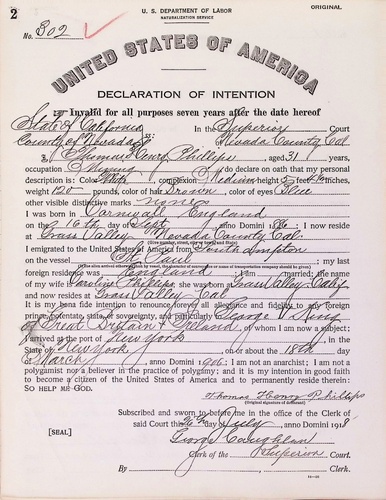 2
U. S. DEPARTMENT OF LABOR
NATURALIZATION SERVICE
ORIGINAL
No. 802
UNITED STATES OF AMERICA
DECLARATION OF INTENTION
Invalid for all purposes seven years after the date hereof
State of California ss: In the Superior Court
County of Nevada of Nevada County Cal.
I, Thomas Henry Phillips, aged 31 years,
occupation Mining, do declare on oath that my personal
description is: Color White, complexion Medium, height 5 feet inches,
weight 120 pounds, color of hair Brown, color of eyes Blue
other visible distinctive marks none
I was born in Cornwall England
on the 16th day of Sept, anno Domini 1886; I now reside
at Grass Valley Nevada County Cal.
(Give number, street, city or town, and State.)
I emigrated to the United States of America from South Ampton
on the vessel St. Paul; my last
(If the alien arrived otherwise than by vessel, the character of conveyance or name of transportation company should be given.)
foreign residence was England; I am married; the name
of my wife is Caroline Phillips; she was born in Grass Valley Calif.
and now resides at Grass Valley Cal.
It is my bona fide intention to renounce forever all allegiance and fidelity to any foreign
prince, potentate, state, or sovereignty, and particularly to George V King
of Great Britain & Ireland, of whom I am now a subject;
I arrived at the port of New York, in the
State of New York, on or about the 18th day
of March, anno Domini 1906; I am not an anarchist; I am not a
polygamist nor a believer in the practice of polygamy; and it is my intention in good faith
to become a citizen of the United States of America and to permanently reside therein:
SO HELP ME GOD.
Thomas Henry Phillips
(Original signature of declarant.)
Subscribed and sworn to before me in the office of the Clerk of
said Court this 26th day of July, anno Domini 1918
[SEAL]
George Coughlan
Clerk of the Superior Court.
By , Clerk.